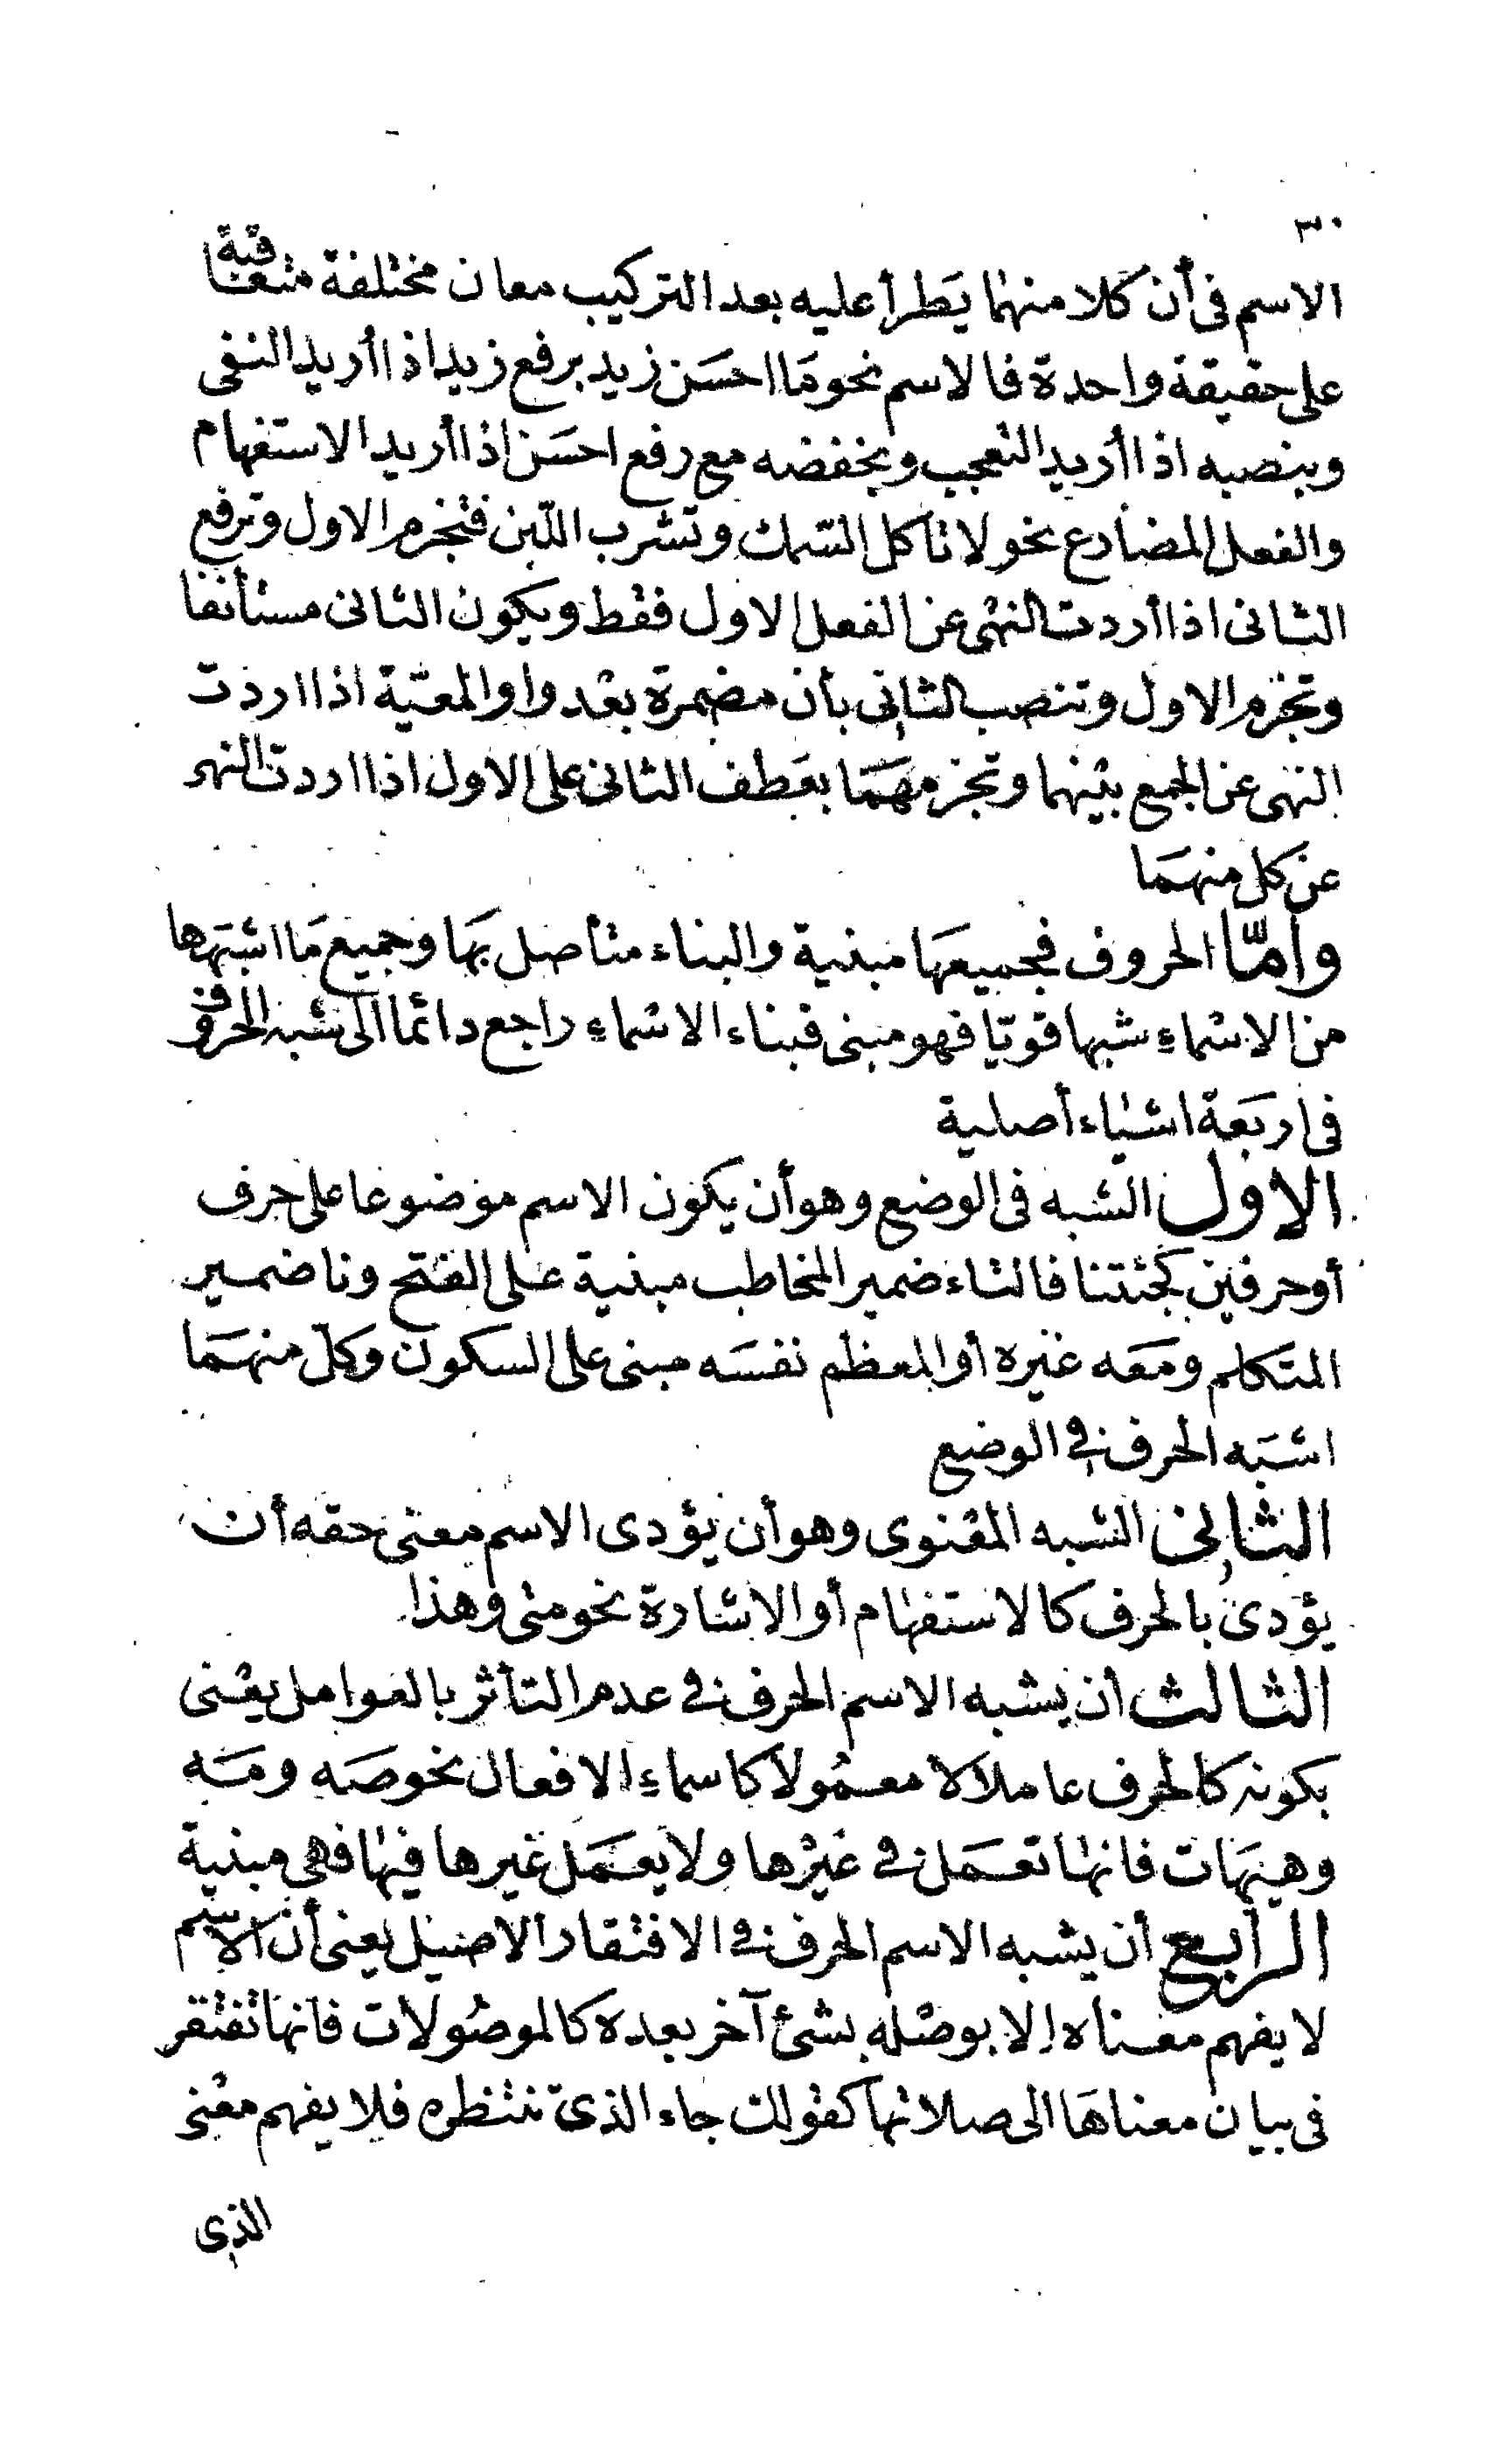 ٣٠
الاسم فى أن كلا منهما يَطرأ عليه بعد التركيب معان مختلفة متعاقبة
على حقيقة واحدة فالاسم نحو مَا احسَن زيد برفع زيد اذا أريد النفى
وبنصبه اذا أريد التعجب وبخفضه مع رفع احسَن اذا أريد الاستفهام
والفعل المضارع نحو لا تأكل السّمك وتشرب اللّبن فتجزم الاول وترفع
الثانى اذا أردت النهى عن الفعل الاول فقط ويكون الثانى مستأنفا
وتجزم الاول وتنصب الثانى بأن مضمرة بعد واو المعيّة اذا اردت
النهى عن الجمع بينهما وتجزمهمَا بعَطف الثانى على الاول اذا اردت النهى
عن كل منهمَا
وأمّا الحروف فجميعهَا مبنية والبناء متأصل بهَا وجميع مَا اشبهها
من الاسماءِ شبها قويّا فهو مبنى فبناء الاسماءِ راجع دائما الى شبه الحروف
فى اربَعة اشياء أصلية
الاول الشبه فى الوضع وهو أن يكون الاسم موضوعا على حرف
أو حرفين كجئتنا فالتاء ضمير المخاطب مبنية على الفتح ونا ضمير
المتكلم ومَعه غيره أو المعظم نفسَه مبنى على السكون وكلّ منهمَا
اشبَه الحرف فى الوضع
الثانى الشبه المعنوى وهو أن يؤدى الاسم معنى حقه أن
يؤدى بالحرف كالاستفهام أو الاشارة نحو متى وهذا
الثالث أن يشبه الاسم الحرف فى عدم التأثر بالعوامل يعنى
بكونه كالحرف عاملا لا معمُولا كاسماءِ الافعال نحو صَه ومَه
وهيهَات فانها تعمَل فى غيرها ولا يعمَل غيرها فيها فهى مبنية
الرابع أن يشبه الاسم الحرف فى الافتقار الاصيل يعنى أن الاسم
لا يفهم معناه إلا بوصله بشئ آخر بعده كالموصُولات فانها تفتقر
فى بيان معناهَا الى صلاتها كقولك جاء الذى تنتظره فلا يفهم معنى
الذى